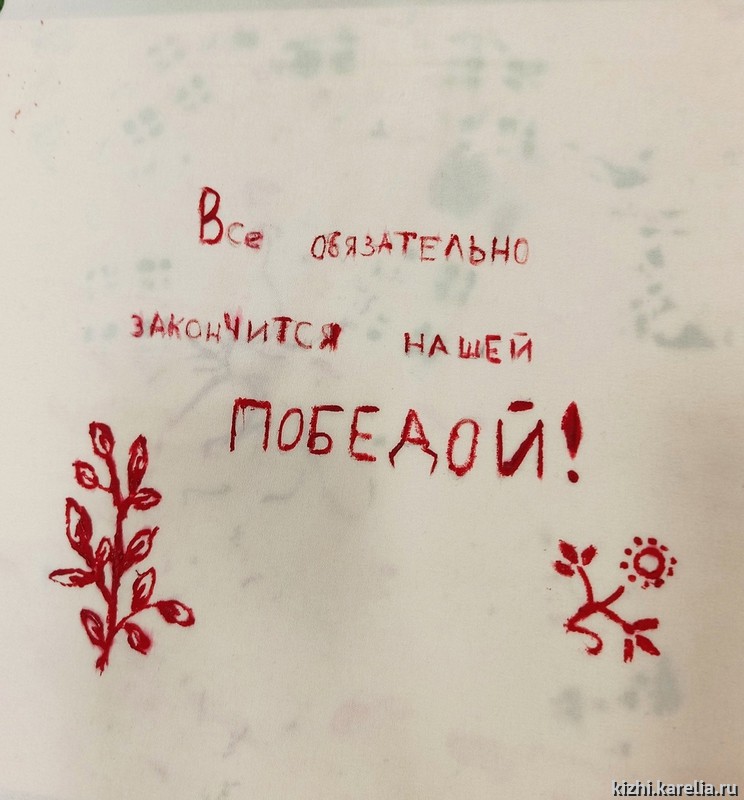 Все обязательно
закончится нашей
ПОБЕДОЙ!
kizhi.karelia.ru